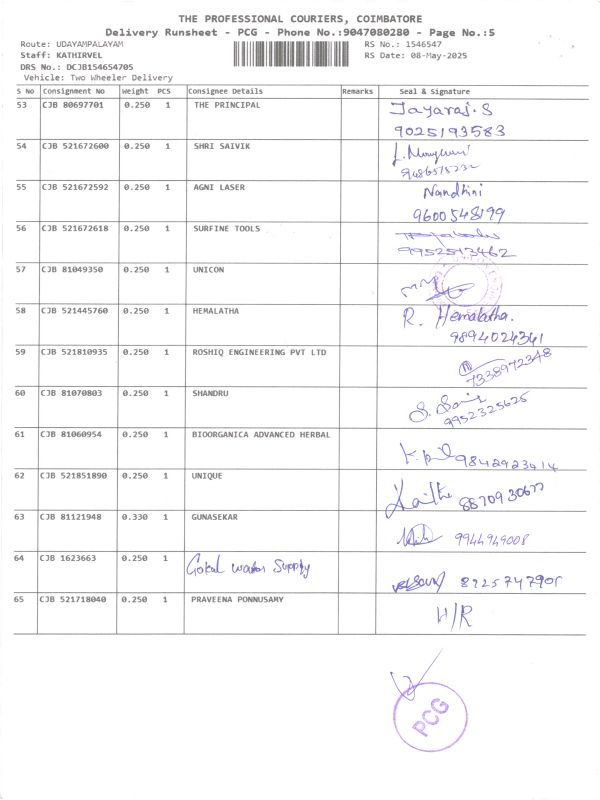 THE PROFESSIONAL COURIERS, COIMBATORE
Delivery Runsheet - PCG - Phone No.:9047080280 - Page No.:5
Route: UDAYAMPALAYAM RS No.: 1546547
Staff: KATHIRVEL RS Date: 08-May-2025
DRS No.: DCJB154654705
Vehicle: Two Wheeler Delivery
S NO Consignment No Weight PCS Consignee Details Remarks Seal & Signature
53 CJB 80697701 0.250 1 THE PRINCIPAL Jayaraj.S
9025193583
54 CJB 521672600 0.250 1 SHRI SAIVIK
55 CJB 521672592 0.250 1 AGNI LASER Nandhini
9600548199
56 CJB 521672618 0.250 1 SURFINE TOOLS
9952513462
57 CJB 81049350 0.250 1 UNICON
58 CJB 521445760 0.250 1 HEMALATHA R. Hemalatha.
9894024341
59 CJB 521810935 0.250 1 ROSHIQ ENGINEERING PVT LTD
7338972348
60 CJB 81070803 0.250 1 SHANDRU
9952325625
61 CJB 81060954 0.250 1 BIOORGANICA ADVANCED HERBAL 9842923414
62 CJB 521851890 0.250 1 UNIQUE
63 CJB 81121948 0.330 1 GUNASEKAR 9944949008
64 CJB 1623663 0.250 1 Gokul water Supply 8925747908
65 CJB 521718040 0.250 1 PRAVEENA PONNUSAMY H/R
PCG